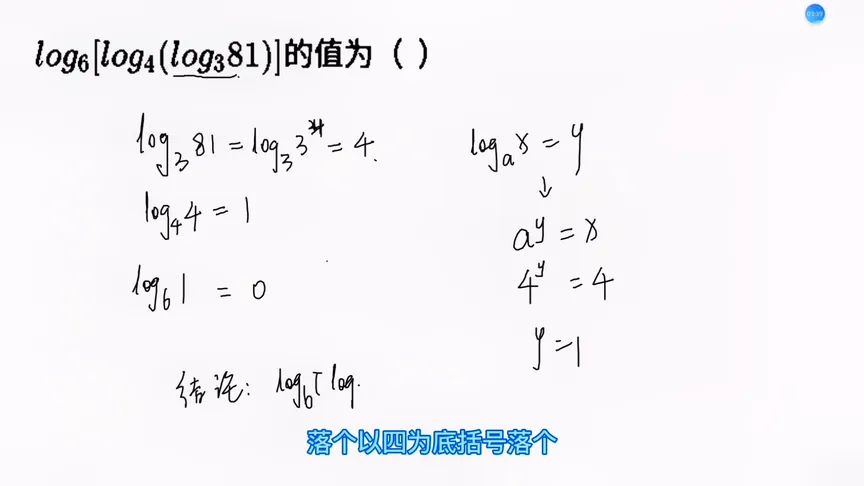 03:39
log₆[log₄(log₃81)]的值为（ ）
log₃81=log₃3⁴=4.
log₄4=1
log₆1=0
logₐx=y
↓
aʸ=x
4ʸ=4
y=1
结论: log₆[log
落个以四为底括号落个